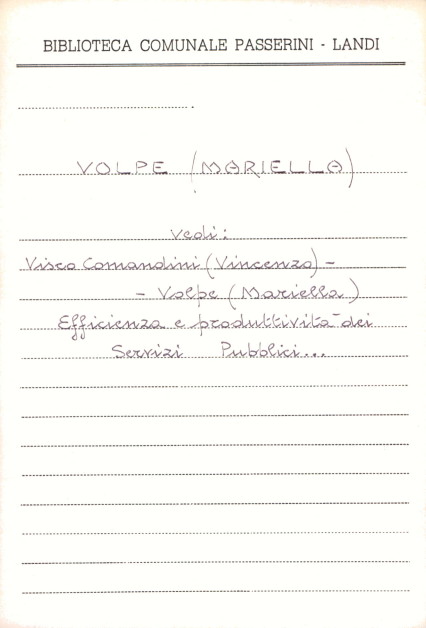 BIBLIOTECA COMUNALE PASSERINI - LANDI
VOLPE (MARIELLA)
Vedi:
Visco Comandini (Vincenzo) -
- Volpe (Mariella)
Efficienza e produttività dei
Servizi Pubblici...